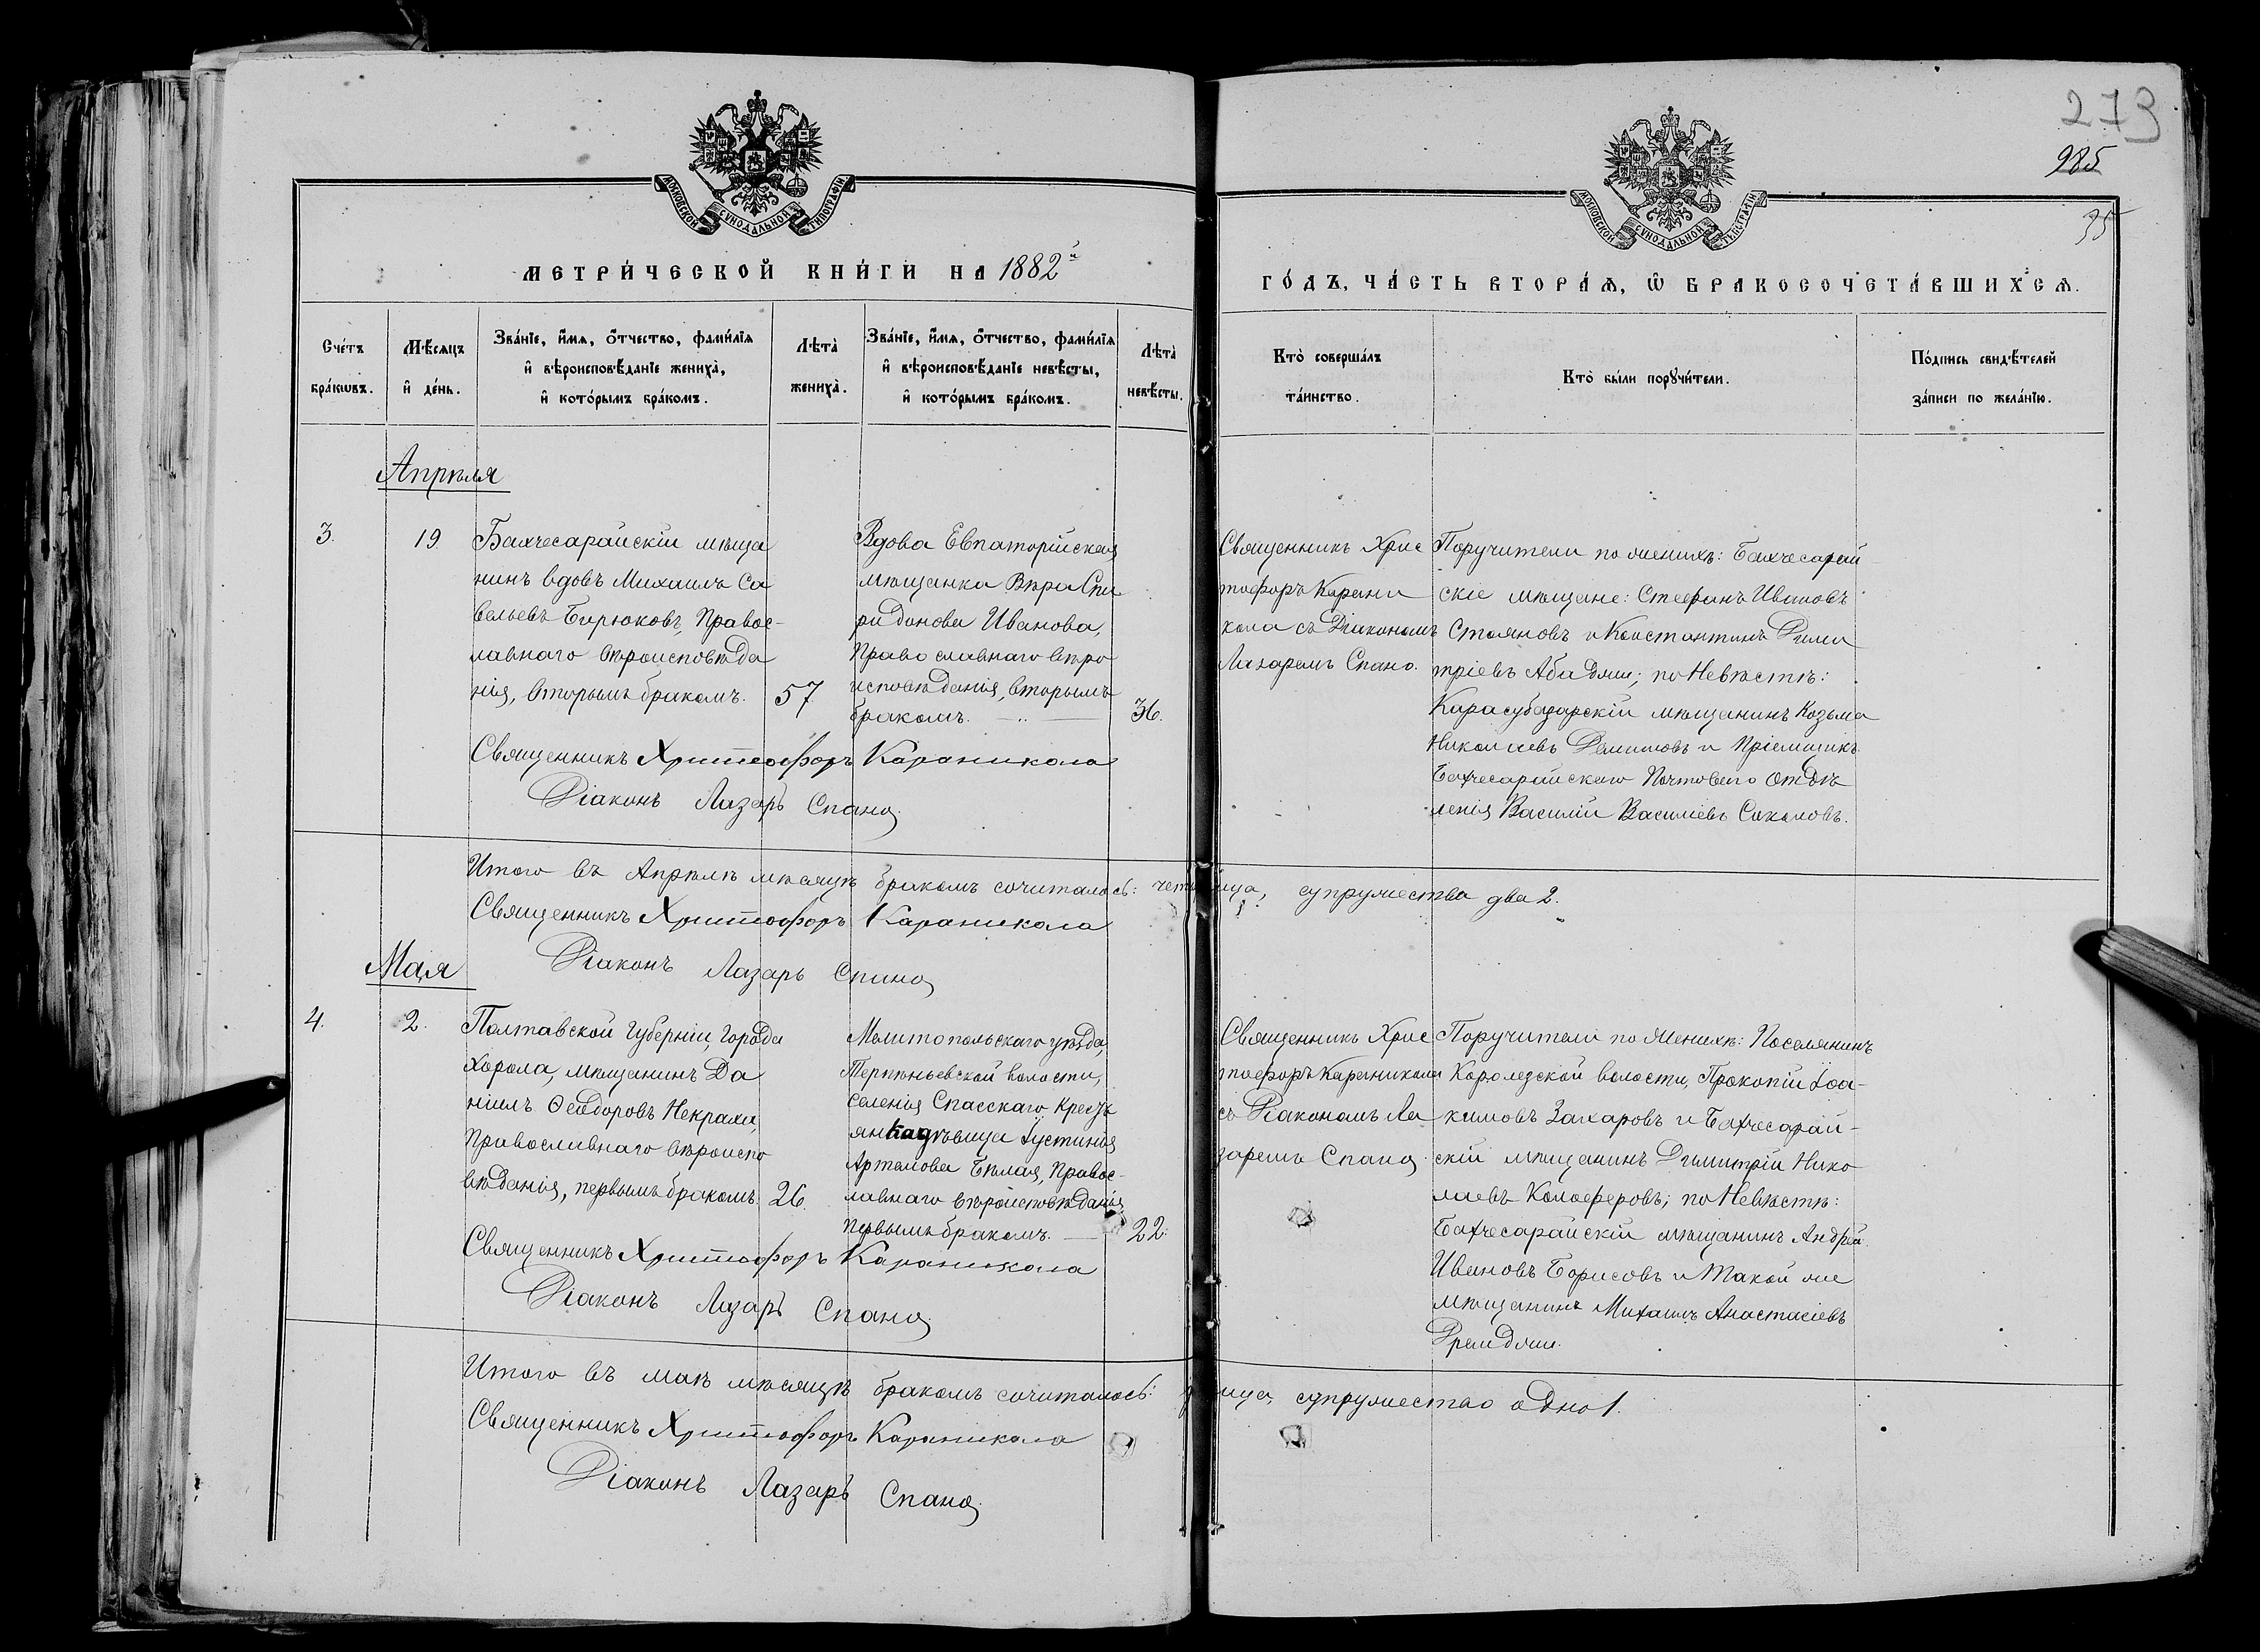 273
985
35
МОСКОВСКОЙ СѴНОДАЛЬНОЙ ТИПОГРАФІИ
МОСКОВСКОЙ СѴНОДАЛЬНОЙ ТИПОГРАФІИ
МЕТРИ́ЧЕСКОЙ КНИ́ГИ НА 1882й
ГО́ДЪ, ЧА́СТЬ ВТОРА́Ѧ, Ѽ БРАКОСОЧЕТА́ВШИХСѦ.
Сче́тъ бра́кѡвъ.
Мѣ́сяцъ и҆ де́нь.
Зва́нїе, и҆́мѧ, ѻ҆́тчество, фами́лїѧ и҆ вѣроисповѣ́данїе жениха̀, и҆ кото́рымъ бра́комъ.
Лѣта̀ жениха̀.
Зва́нїе, и҆́мѧ, ѻ҆́тчество, фами́лїѧ и҆ вѣроисповѣ́данїе невѣ́сты, и҆ кото́рымъ бра́комъ.
Лѣта̀ невѣ́сты.
Кто̀ соверша́лъ та́инство.
Кто̀ бы́ли порꙋчи́тели.
По́дпись свидѣ́телей за́писи по жела́нїю.
Апрѣля
3.
19.
Бахчесарайскій мѣща
нинъ вдовъ Михаилъ Са
вельевъ Бирюковъ, Правос-
лавнаго вѣроисповѣда
нія, вторымъ бракомъ.
57.
Вдова Евпаторійская
мѣщанка Вѣра Спи
ридонова Иванова,
Православнаго вѣро
исповѣданія, вторымъ
бракомъ.
36.
Священникъ Христофоръ Караникола
Діаконъ Лазарь Спано
Священникъ Хрис
тофоръ Карани
кола съ Діакономъ
Лазаремъ Спано.
Поручители по женихѣ: Бахчесарай
скіе мѣщане: Стефанъ Ивановъ
Стояновъ и Константинъ Дими
тріевъ Абаджи; по Невѣстѣ:
Карасубазарскій мѣщанинъ Козьма
Николаевъ и Пріемщикъ
Бахчесарайскаго Почтоваго Отдѣ
ленія Василій Василіевъ Соколовъ.
Итого въ Апрѣлѣ мѣсяцѣ бракомъ сочиталось: супружества два 2.
Священникъ Христофоръ Караникола
Діаконъ Лазарь Спано
Мая
4.
2.
Полтавской Губерніи, Города
Хорола, мѣщанинъ Да
ніилъ Ѳеодоровъ Некраха,
Православнаго вѣроиспо
вѣданія, первымъ бракомъ.
26.
Мелитопольскаго уѣзда,
Терпѣньевской волости,
селенія Спасскаго, Крестъ
янка дѣвица Іустинія
Артемова Бѣлая, Правос-
лавнаго вѣроисповѣданія,
первымъ бракомъ.
22.
Священникъ Христофоръ Караникола
Діаконъ Лазарь Спано
Священникъ Хрис
тофоръ Караникола
съ Діакономъ Ла
заремъ Спано.
Поручители по Женихѣ: Поселянинъ
Каролезской волости, Прокопій Іоа-
кимовъ Захаровъ и Бахчесарай-
скій мѣщанинъ Димитрій Нико
лаевъ Калоферовъ; по Невѣстѣ:
Бахчесарайскій мѣщанинъ Андрей
Ивановъ Борисовъ и Такой же
мѣщанинъ Михаилъ Анастасіевъ
Итого въ маѣ мѣсяцѣ бракомъ сочиталось: супружество одно 1.
Священникъ Христофоръ Караникола
Діаконъ Лазарь Спано.